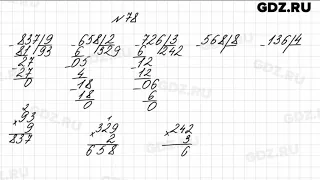 GDZ.RU
№78
837|9 658|2 726|3 568|8 136|4
81|93 6|329 6|242
27 05 12
27 4 12
0 18 06
18 6
0 0
2 1
×93 ×329 ×242
9 2 3
837 658 6